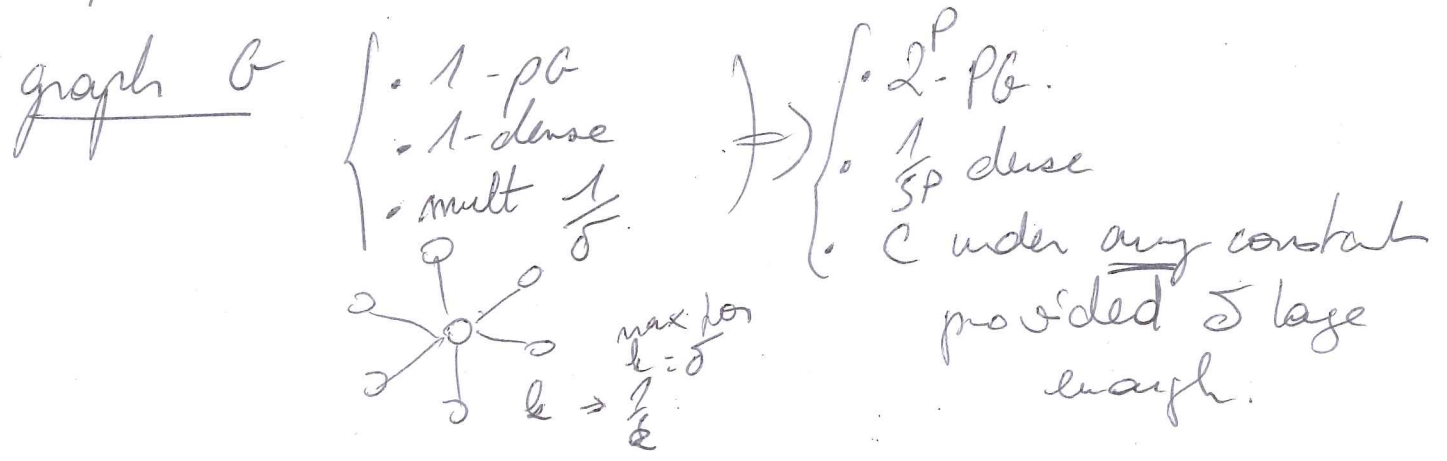 graph G
. 1-pG
. 1-dense
. mult 1/δ
=>
. 2^P-PG.
. 1/5P dense
. C under any constant
provided δ large
enough.
max for
k = δ
k → 1/k